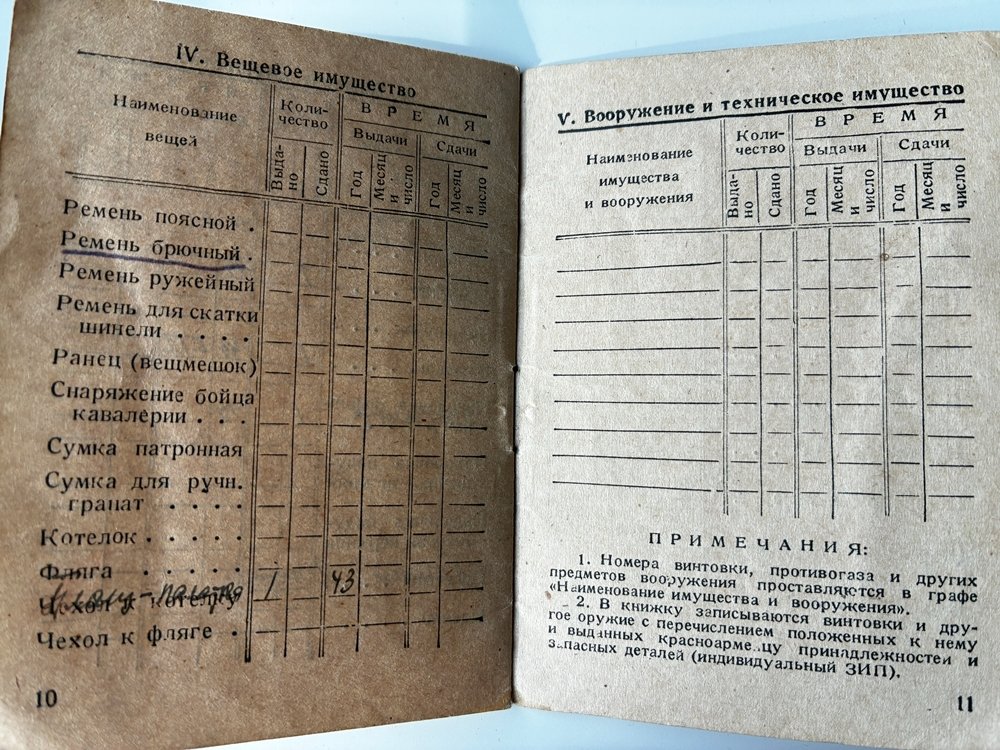 IV. Вещевое имущество
Наименование
вещей
Коли-
чество
ВРЕМЯ
Выдачи
Сдачи
Выда-
но
Сдано
Год
Месяц
и
число
Год
Месяц
и
число
Ремень поясной .
Ремень брючный .
Ремень ружейный
Ремень для скатки
шинели . . . .
Ранец (вещмешок)
Снаряжение бойца
кавалерии . . .
Сумка патронная
Сумка для ручн.
гранат . . . .
Котелок . . . . .
Фляга . . . . .
Чехол к котелку 1 43
Чехол к фляге .
10
V. Вооружение и техническое имущество
Наименование
имущества
и вооружения
Коли-
чество
ВРЕМЯ
Выдачи
Сдачи
Выда-
но
Сдано
Год
Месяц
и
число
Год
Месяц
и
число
ПРИМЕЧАНИЯ:
1. Номера винтовки, противогаза и других
предметов вооружения проставляются в графе
«Наименование имущества и вооружения».
2. В книжку записываются винтовки и дру-
гое оружие с перечислением положенных к нему
и выданных красноармейцу принадлежностей и
запасных деталей (индивидуальный ЗИП).
11